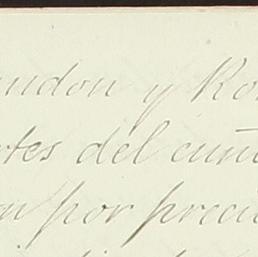 ndon y Ro
tes del cuñ
n por precu